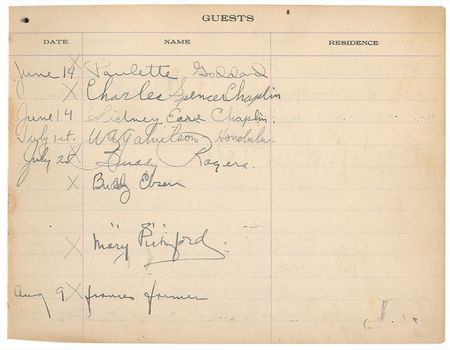 GUESTS
DATE NAME RESIDENCE
June 14 X Paulette Goddard
X Charles Spencer Chaplin
June 14 Sidney Earl Chaplin.
July 1st. Honolulu
July 25 X Buddy Rogers
X Buddy Ebsen
X "Mary Pickford"
Aug 9 X Frances Farmer